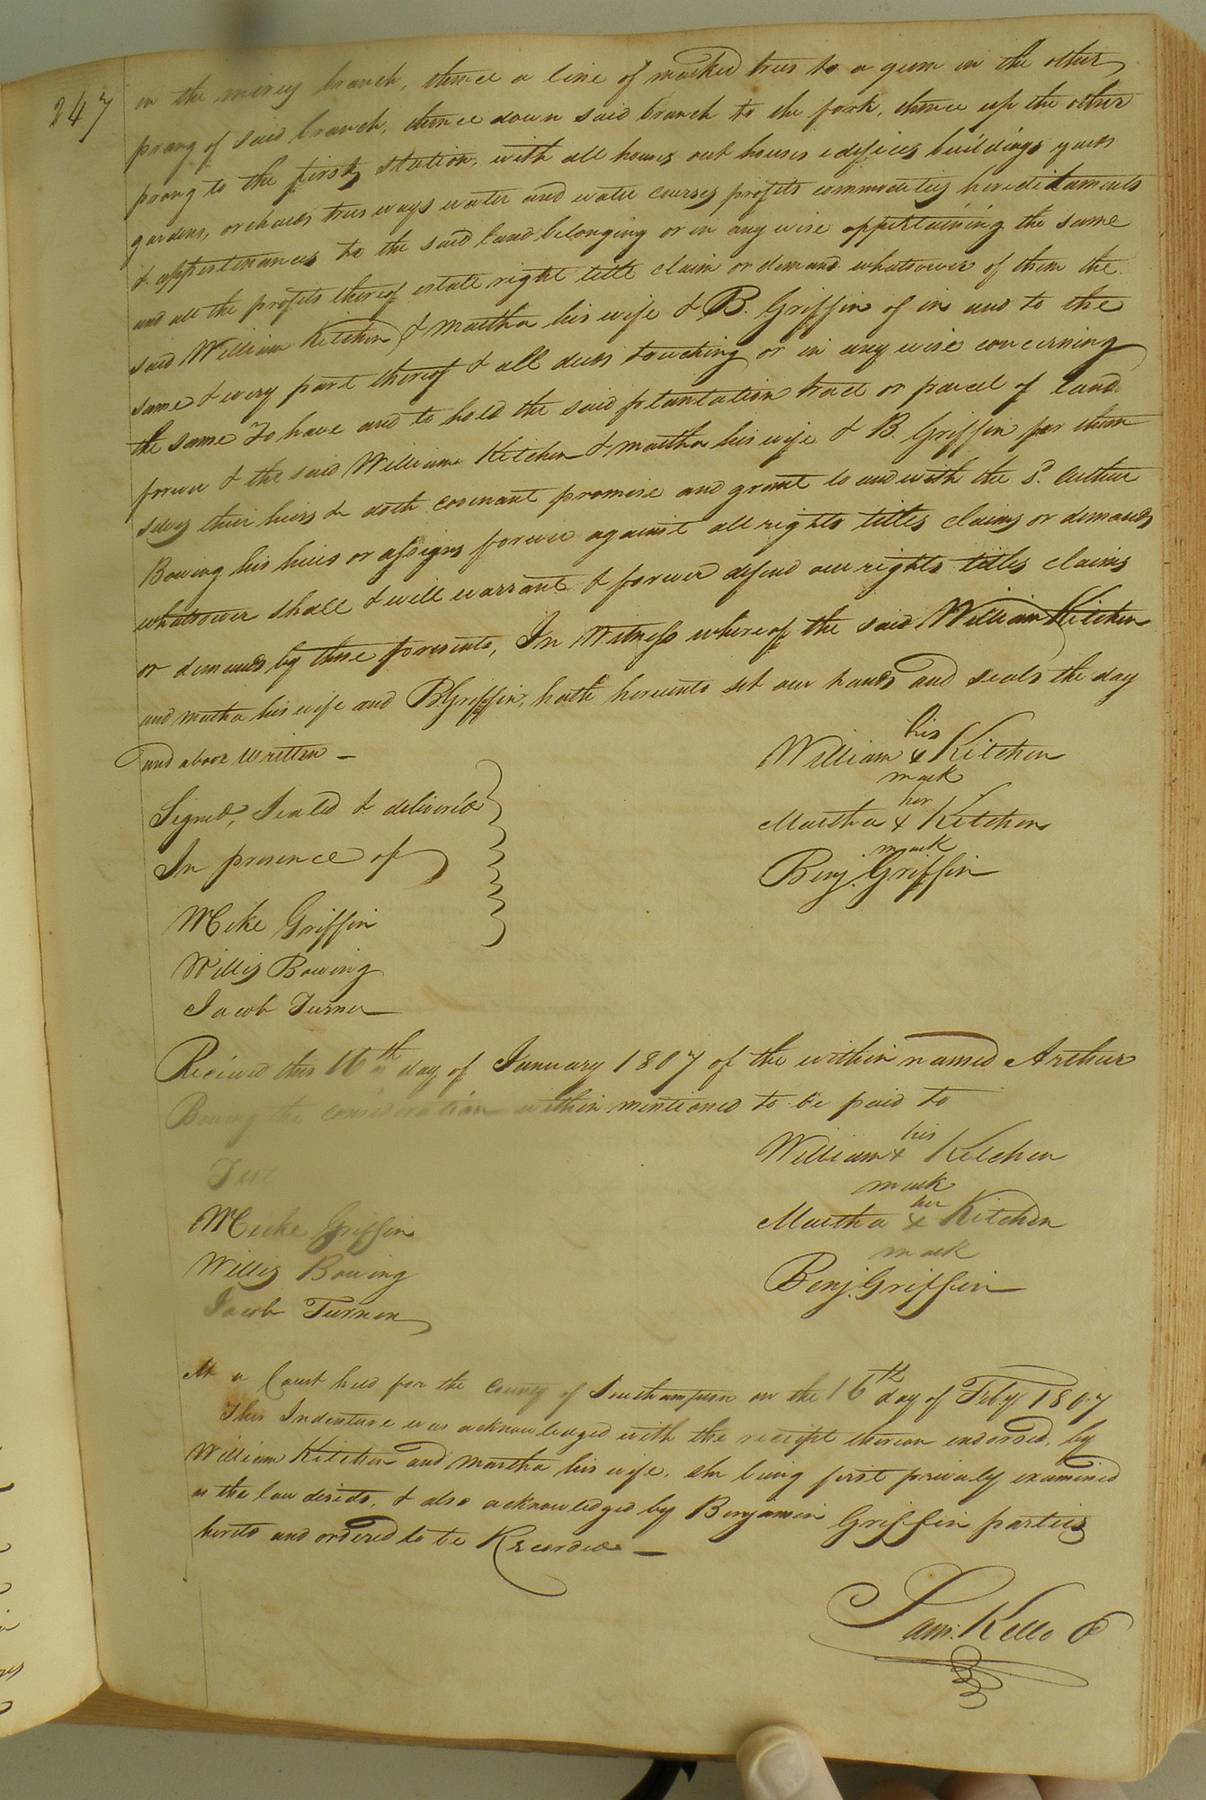 247
on the mirey branch, thence a line of marked trees to a gum in the other
prong of said branch, thence down said branch to the fork, thence up the other
prong to the first station, with all houses out houses edifices buildings yards
gardens, orchards trees ways water and water courses profits commodities hereditaments
& appertinances to the said land belonging or in any wise appertaining the same
and all the profits thereof estate right title claim or demand whatsoever of them the
said William Kitchen & Martha his wife & B. Griffin of in and to the
same & every part thereof & all deeds touching or in any wise concerning
the same To have and to hold the said plantation tract or parcel of land
forever & the said William Kitchen & Martha his wife & B. Griffin for them
selves their heirs & doth covenant promise and grant to and with the sd. Arthur
Bowing his heirs or assigns forever against all rights titles claims or demands
whatsoever shall & will warrant & forever defend all rights titles claims
or demands by these presents, In Witness whereof the said William Kitchen
and Martha his wife and B. Griffin, hath hereunto set our hands and seals the day
and above Written —
William his x mark Kitchen
Signed, Sealed & delivered
Martha her x mark Kitchen
In presence of
Benj. Griffin
Meke Griffin
Willis Bowing
Jacob Turner
Recieved this 16th day of January 1807 of the within named Arthur
Bowing the consideration within mentioned to be paid to
William his x mark Kitchen
Test
Martha her x mark Kitchen
Meeke Griffin
Willis Bowing
Benj. Griffin
Jacob Turner
At a Court held for the County of Southampton on the 16th day of Feby 1807
This Indenture was acknowledged with the reciept thereon endorsed, by
William Kitchen and Martha his wife, she being first privily examined
as the law directs, & also acknowledged by Benjamin Griffin parties
hereto and ordered to be Recorded —
Sam. Kello C